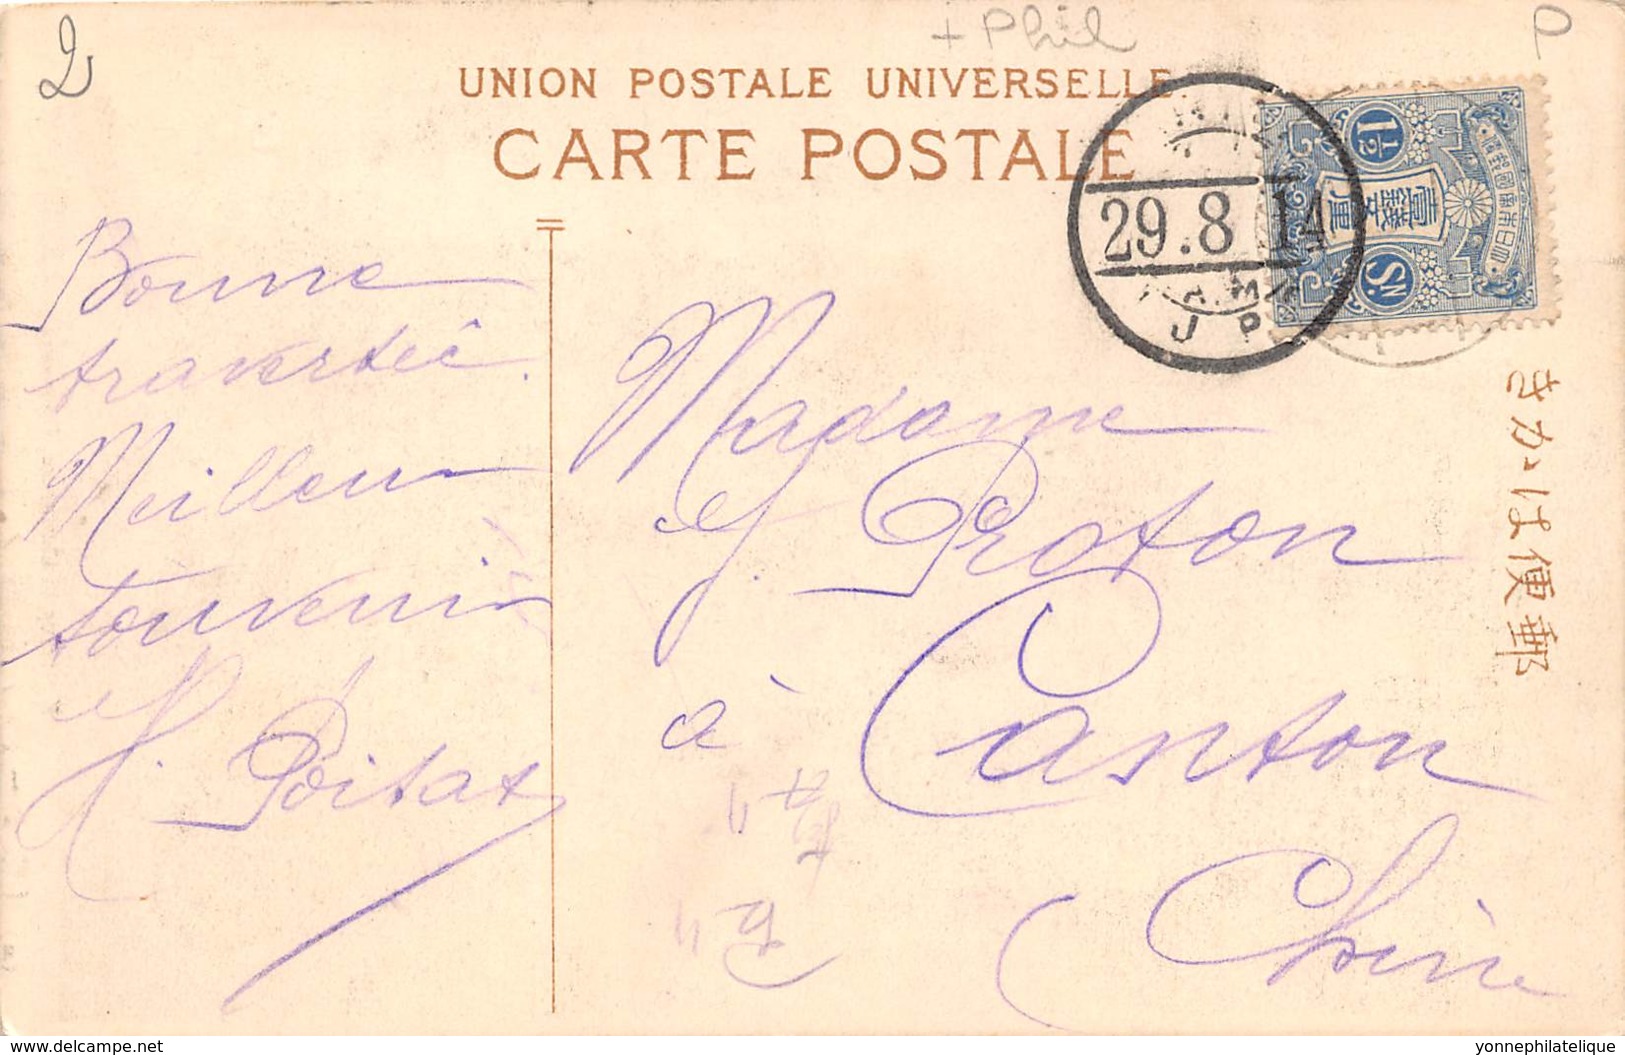 2
+ Phil
UNION POSTALE UNIVERSELLE
CARTE POSTALE
29.8.14
J P
1½
Sɴ
大日本帝國郵便
壹錢五厘
きかは便郵
Bonne
traversée.
Meilleur
souvenir
H. Poitat
Madame
Y. Proton
à Canton
Chine
www.delcampe.net
yonnephilatelique